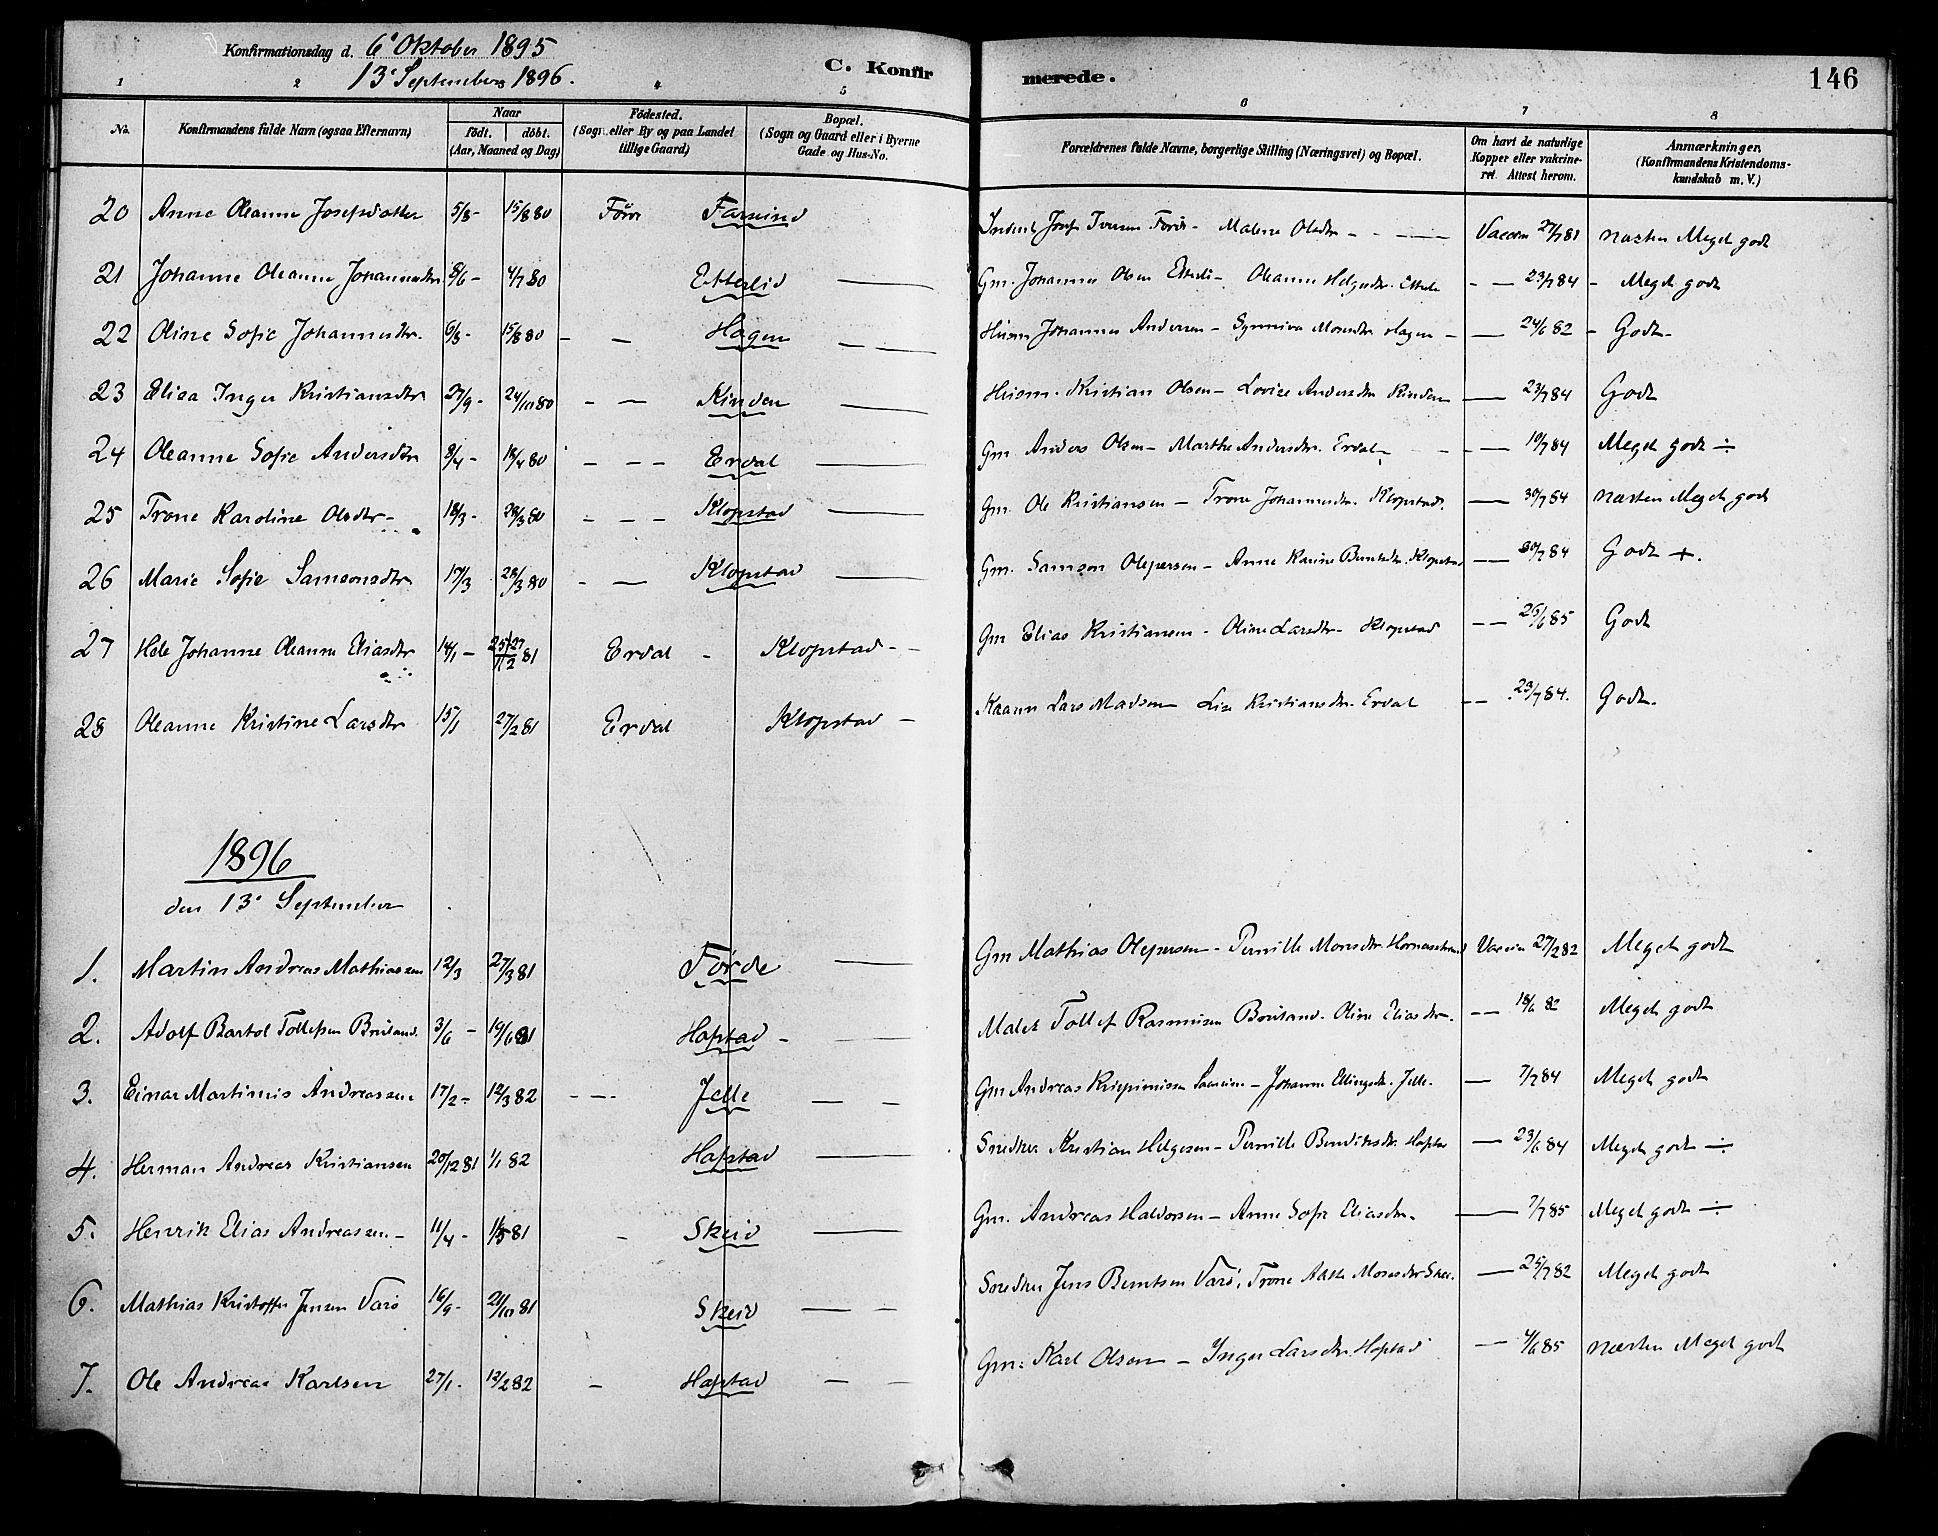 Konfirmationsdag d. 6' Oktober 1895
13' September 1896.
C. Konfirmerede.
146
1 2 4 5 6 7 8
No. Konfirmandens fulde Navn (ogsaa Efternavn) Naar födt. döbt. (Aar, Maaned og Dag) Födested. (Sogn eller By og paa Landet tillige Gaard) Bopæl. (Sogn og Gaard eller i Byerne Gade og Hus-No. Forældrenes fulde Navne, borgerlige Stilling (Næringsvei) og Bopæl. Om havt de naturlige Kopper eller vakcineret. Attest herom. Anmærkninger. (Konfirmandens Kristendomskundskab m. V.)
20 Anne Oleanne Josefsdatter 5/8- 15/8 80 Förde Farsund Josef Iversen Förde - Malene Olsdtr - - - Vaccin 27/7 81 næsten Meget godt
21 Johanne Oleanne Johannesdtr. 8/6 - 4/7 80 Etterlid — Gm. Johannes Olsen - Oleanne Helgesdtr. - — 23/7 84 - Meget godt
22 Oline Sofie Johannesdtr. 6/8- 15/8 80 - - Hagen — Husm Johannes Andersen - Synneva Monsdtr Hagen - — 24/6 82 - Godt-
23 Elisa Inger Kristiansdtr 27/9 - 24/10 80 - - Kinden — Husm. Kristian Olsen - Lovise Andersdtr Kinden — 23/7 84 Godt
24 Oleanne Sofie Andersdtr 8/4 - 18/4 80 - - - Erdal — Gm Anders Olsen - Marthe Andersdtr. Erdal - - — 10/7 84 Meget godt ÷
25 Trone Karoline Olsdtr - 18/3 - 28/3 80 - - - Klopstad — Gm. Ole Kristiansen - Trone Johannesdtr. Klopstad. — 30/7 84 næsten Meget godt
26 Marie Sofie Samsonsdtr 17/3 28/3 80 - - Klopstad — Gm. Samson Olepersen - Anne Karine Berntsdtr. Klopstad — 30/7 84 Godt +.
27 Johanne Oleanne Eliasdtr 14/1 - 81 Erdal - Klopstad - - Gm Elias Kristiansen - Oline Larsdtr - Klopstad - — 26/6 85 Godt
28 Oleanne Kristine Larsdtr 15/1 27/2 81 Erdal Klopstad - Lars Madsen Lise Kristiansdtr. Erdal - - 23/7 84. Godt.
1896
den 13' September
1. Martin Andreas Mathiassen 12/3 27/3 81 Förde — Gm Mathias Olepersen - Pernille Monsdtr. Vaccin 27/2 82 Meget godt
2. Adolf Bartol Tollefsen Bruland. 3/6 - 19/6 81 Hafstad - — Maler Tollef Rasmussen Bruland. Oline Eliasdtr. - — 18/6 82 Meget godt
3. Einar Martinius Andreassen 17/2 - 12/3 82 - - - Jelle — - Gm Andreas - Johanne Ellingsdtr. Jelle. — 7/7 84 Meget godt
4. Herman Andreas Kristiansen 20/12 81 1/1 82 Hafstad — Snedker Kristian Helgesen - Pernille Bendiksdtr. Hafstad — 23/6 84 Meget godt ÷
5. Henrik Elias Andreassen - 11/4 - 1/5 81 - Skeid — Gm. Andreas Haldorsen - Anne Sofie Eliasdtr. — 7/7 85 Meget godt ÷
6. Mathias Kristoffer Jensen Varö 16/9 - 81 Skeid — - Snedker Jens Berntsen Varö, Trone Monsdtr — 25/7 82 Meget godt
7. Ole Andreas Karlsen 27/1 - 12/2 82 - Hafstad — - Gm. Karl Olsen - Inger Larsdtr. Hafstad — 4/6 85 næsten Meget godt